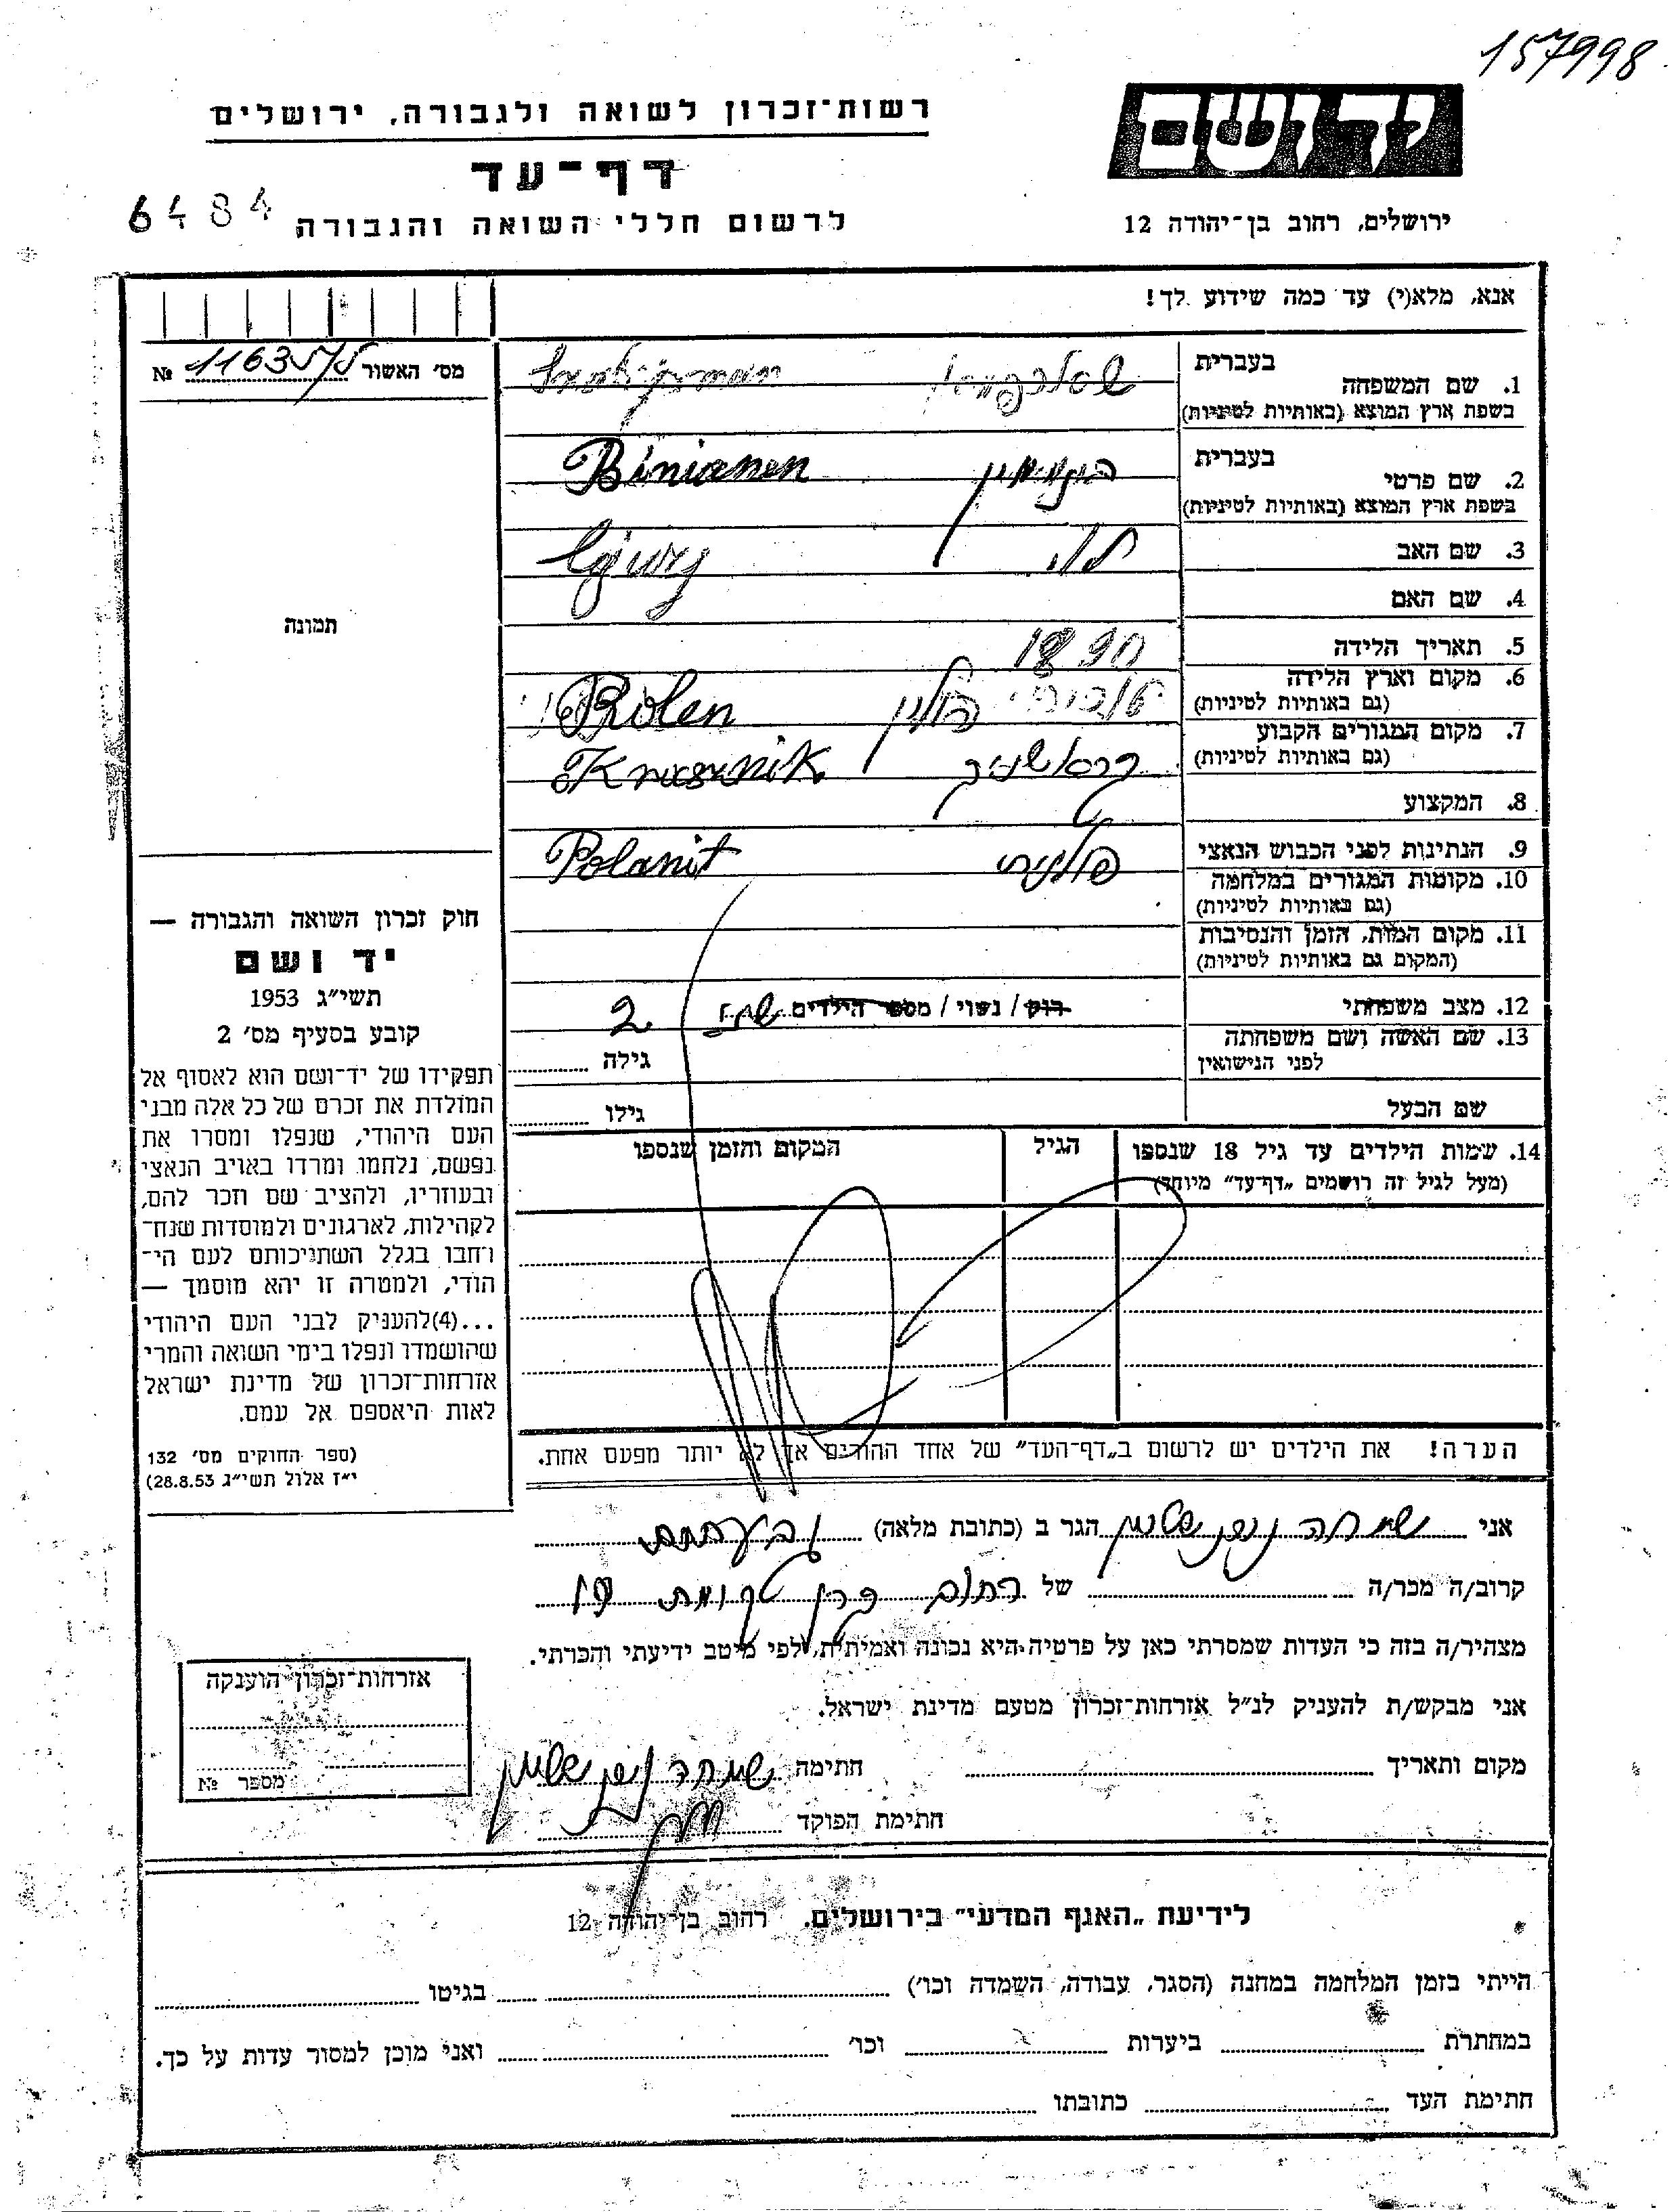 157998
יד ושם
רשות־זכרון לשואה ולגבורה, ירושלים
דף־עד
לרשום חללי השואה והגבורה 6484
ירושלים, רחוב בן־יהודה 12
אנא, מלא(י) עד כמה שידוע לך!
מס׳ האשור № 11635
בעברית
1. שם המשפחה
בשפת ארץ המוצא (באותיות לטיניות)
בעברית
2. שם פרטי בנימין Binianen
בשפת ארץ המוצא (באותיות לטיניות)
3. שם האב
4. שם האם
5. תאריך הלידה 1890
6. מקום וארץ הלידה פולין Polen
(גם באותיות לטיניות)
7. מקום המגורים הקבוע קראשניק Krasznik
(גם באותיות לטיניות)
8. המקצוע
9. הנתינות לפני הכבוש הנאצי פולנית Polanit
10. מקומות המגורים במלחמה
(גם באותיות לטיניות)
11. מקום המות, הזמן והנסיבות
(המקום גם באותיות לטיניות)
12. מצב משפחתי רווק / נשוי / מספר הילדים 2
13. שם האשה ושם משפחתה
לפני הנישואין גילה
שם הבעל גילו
14. שמות הילדים עד גיל 18 שנספו הגיל המקום והזמן שנספו
(מעל לגיל זה רושמים „דף־עד” מיוחד)
הערה! את הילדים יש לרשום ב„דף־העד” של אחד ההורים אך לא יותר מפעם אחת.
תמונה
חוק זכרון השואה והגבורה —
יד ושם
תשי״ג 1953
קובע בסעיף מס׳ 2
תפקידו של יד־ושם הוא לאסוף אל
המולדת את זכרם של כל אלה מבני
העם היהודי, שנפלו ומסרו את
נפשם, נלחמו ומרדו באויב הנאצי
ובעוזריו, ולהציב שם וזכר להם,
לקהילות, לארגונים ולמוסדות שנח־
רחבו בגלל השתייכותם לעם הי־
הודי, ולמטרה זו יהא מוסמך —
...(4)להעניק לבני העם היהודי
שהושמדו ונפלו בימי השואה והמרי
אזרחות־זכרון של מדינת ישראל
לאות היאספם אל עמם.
(ספר החוקים מס׳ 132
י״ז אלול תשי״ג 28.8.53)
אני שמחה הגר ב (כתובת מלאה) גבעתים
קרוב/ה מכר/ה של רחוב קרן קימת
מצהיר/ה בזה כי העדות שמסרתי כאן על פרטיה היא נכונה ואמיתית, לפי מיטב ידיעתי והכרתי.
אני מבקש/ת להעניק לנ״ל אזרחות־זכרון מטעם מדינת ישראל.
מקום ותאריך חתימה שמחה
חתימת הפוקד
אזרחות־זכרון הוענקה
מספר №
לידיעת „האגף המדעי” בירושלים, רחוב בן־יהודה 12
הייתי בזמן המלחמה במחנה (הסגר, עבודה, השמדה וכו׳) בגיטו
במחתרת ביערות וכו׳ ואני מוכן למסור עדות על כך.
חתימת העד כתובתו